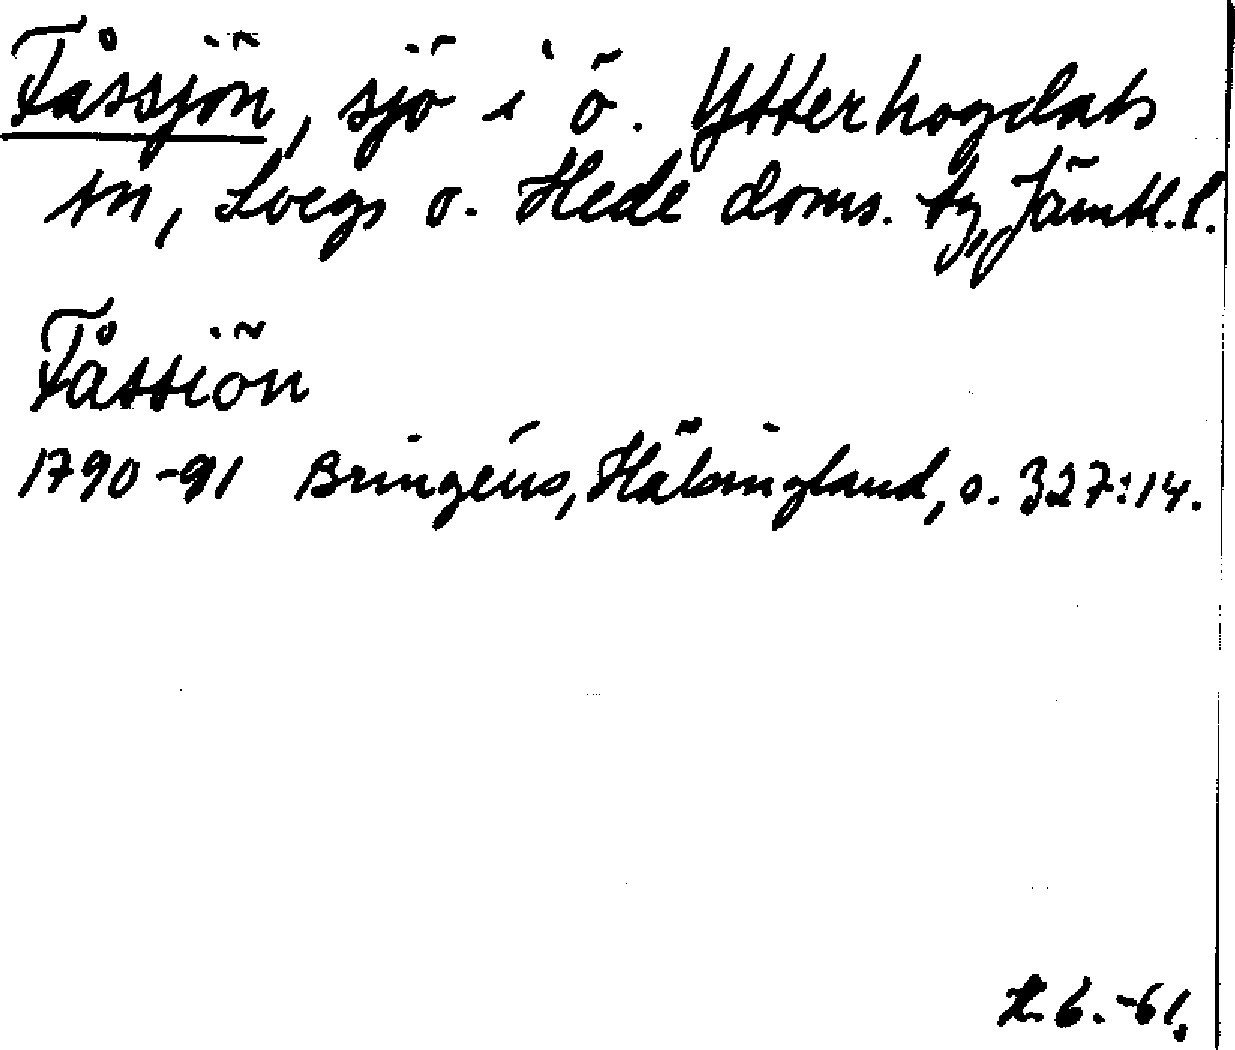 Fåssjön, sjö i ö. Ytterhogdals
sn, Svegs o. Hede doms. tg, Jämtl.l.
Fåssiön
1790-91 Bringéus, Hälsingland, s. 327:14.
6.-61.